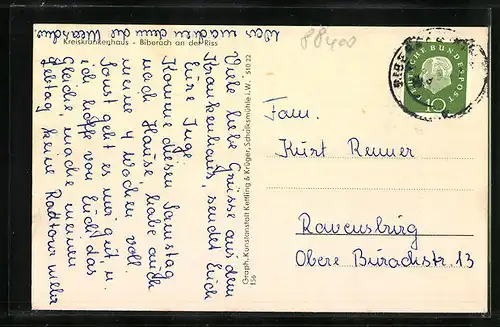 88400
Kreiskrankenhaus - Biberach an der Riss
Viele liebe Grüsse aus dem
Krankenhaus, sendet Euch
Eure Inge.
Komme diesen Samstag
nach Hause, habe auch
meine 4 Wochen voll.
Sonst geht es mir gut u.
ich hoffe von Euch das
Gleiche, mache meinen
Lebtag keine Radtour mehr
Was machen denn die
510 22
Graph. Kunstanstalt Kettling & Krüger, Schalksmühle i. W.
156
DEUTSCHE BUNDESPOST
10
Fam.
Kurt Renner
Ravensburg
Obere Burachstr. 13